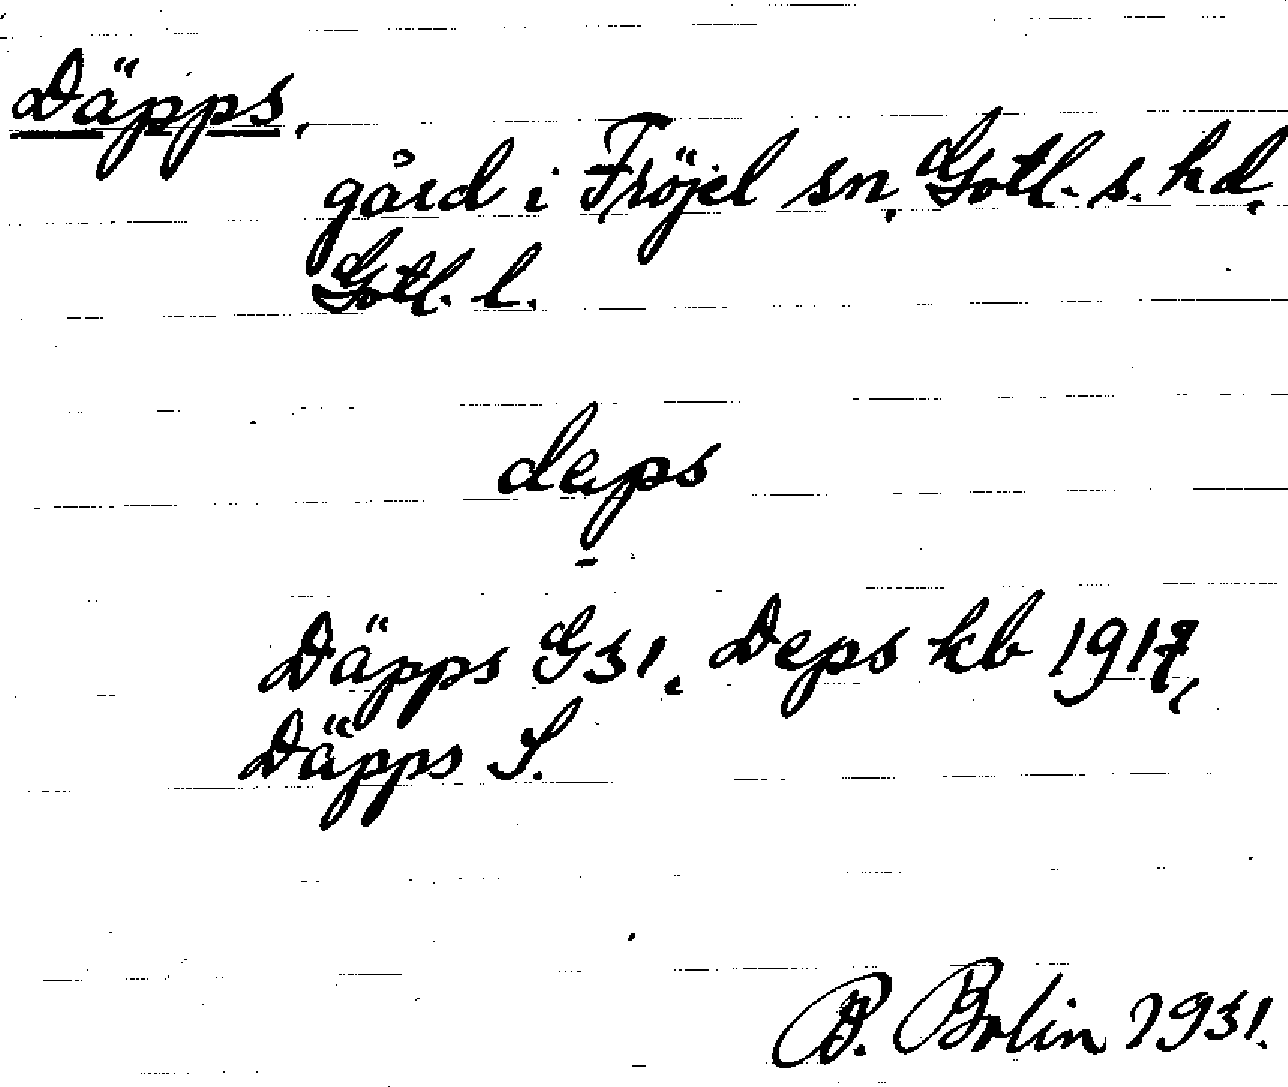 Däpps,
gård i Fröjel sn, Gotl. s. hd,
Gotl. l.
deps
Däpps G31, Deps kb 1917,
Däpps S.
B. Bolin 1931.